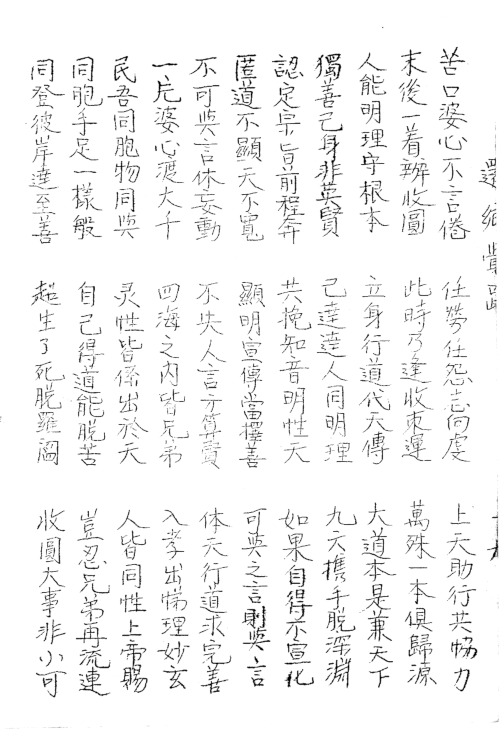 還鄉覺
苦口婆心不言倦 任勞任怨志向虔 上天助行共協力
末後一着辦收圓 此時乃逢收束運 萬殊一本俱歸源
人能明理守根本 立身行道代天傳 大道本是兼天下
獨善己身非英賢 己達達人同明理 九六携手脫深淵
認定宗旨前程奔 共挽知音明性天 如果自得不宣化
匿道不顯天不寬 顯明宣傳當擇善 可與之言則與言
不可與言休妄動 不失人言方算賢 体天行道求完善
一片婆心渡大千 四海之內皆兄弟 入孝出悌理妙玄
民吾同胞物同與 灵性皆係出於天 人皆同性上帝賜
同胞手足一樣般 自己得道能脫苦 豈忍兄弟再流連
同登彼岸達至善 超生了死脫羅閻 收圓大事非小可